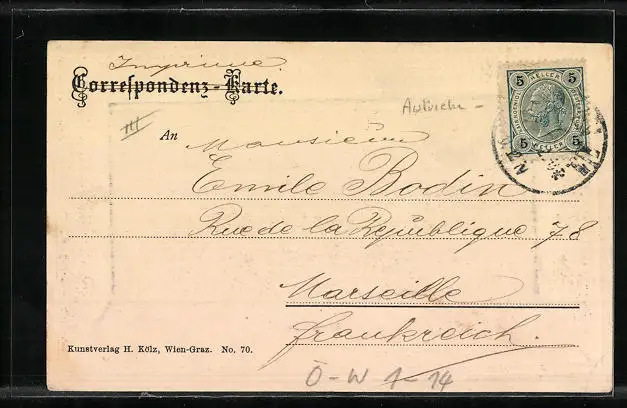 Imprimé.
Correspondenz-Karte.
5 HELLER 5
Autriche -
An Monsieur
Emile Bodin
5 HELLER 5
Rue de la République 78
Marseille
Frankreich.
Kunstverlag H. Kölz, Wien-Graz. No. 70.
Ö-W 1-14